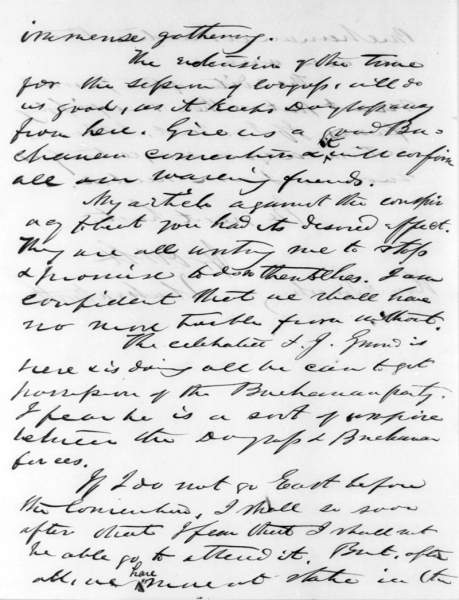 immense gathering.
The extension of the time
for the session of Congress, will do
us good, as it keeps Douglass away
from here. Give us a good Bu-
chanan convention & it will confirm
all our wavering friends.
My article against the conspir
acy to hurt you had its desired effect.
They are all writing me to stop
& promise to do so themselves. I am
confident that we shall have
no more trouble from without.
The celebrated F. J. Grund is
here & is doing all he can to get
possession of the Buchanan party.
I fear he is a sort of umpire
between the Douglass & Buchanan
forces.
If I do not go East before
the Convention, I shall so soon
after that I fear that I shall not
be able go, to attend it. But, after
all, we have more at stake in the